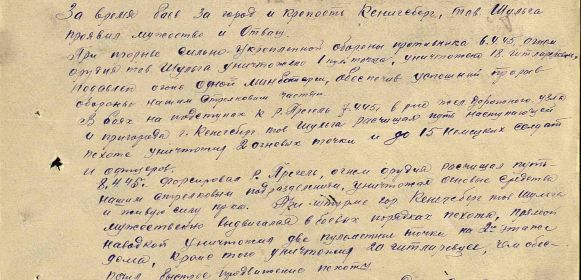 За время боев за город и крепость Кенигсберг, тов. Шульга
проявил мужество и отвагу.
При прорыве сильно-укрепленной обороны противника 6.4.45 огнем
орудия тов Шульга уничтожено 1 пул. точка, уничтожено 18 гитлеровцев,
подавлен огонь одной минбатареи, обеспечив успешный прорыв
обороны нашим стрелковым частям.
В боях на подступах к р. Прегель 7.4.45г в р-не жел. дорожного узла
и пригорода г. Кенигсберг тов Шульга расчищая путь наступающей
пехоте уничтожил 2 огневых точки и до 15 немецких солдат
и офицеров.
8.4.45г. Форсировав р. Прегель, огнем орудия расчищая путь
нашим стрелковым подразделениям, уничтожая огневые средства
и живую силу пр-ка. При штурме гор Кенигсберг тов Шульга
мужественно выдвигался в боевых порядках пехоты, прямой
наводкой уничтожил две пулеметные точки на 2м этаже
дома, кроме того уничтожил 20 гитлеровцев, чем обес-
печил быстрое продвижение пехоты